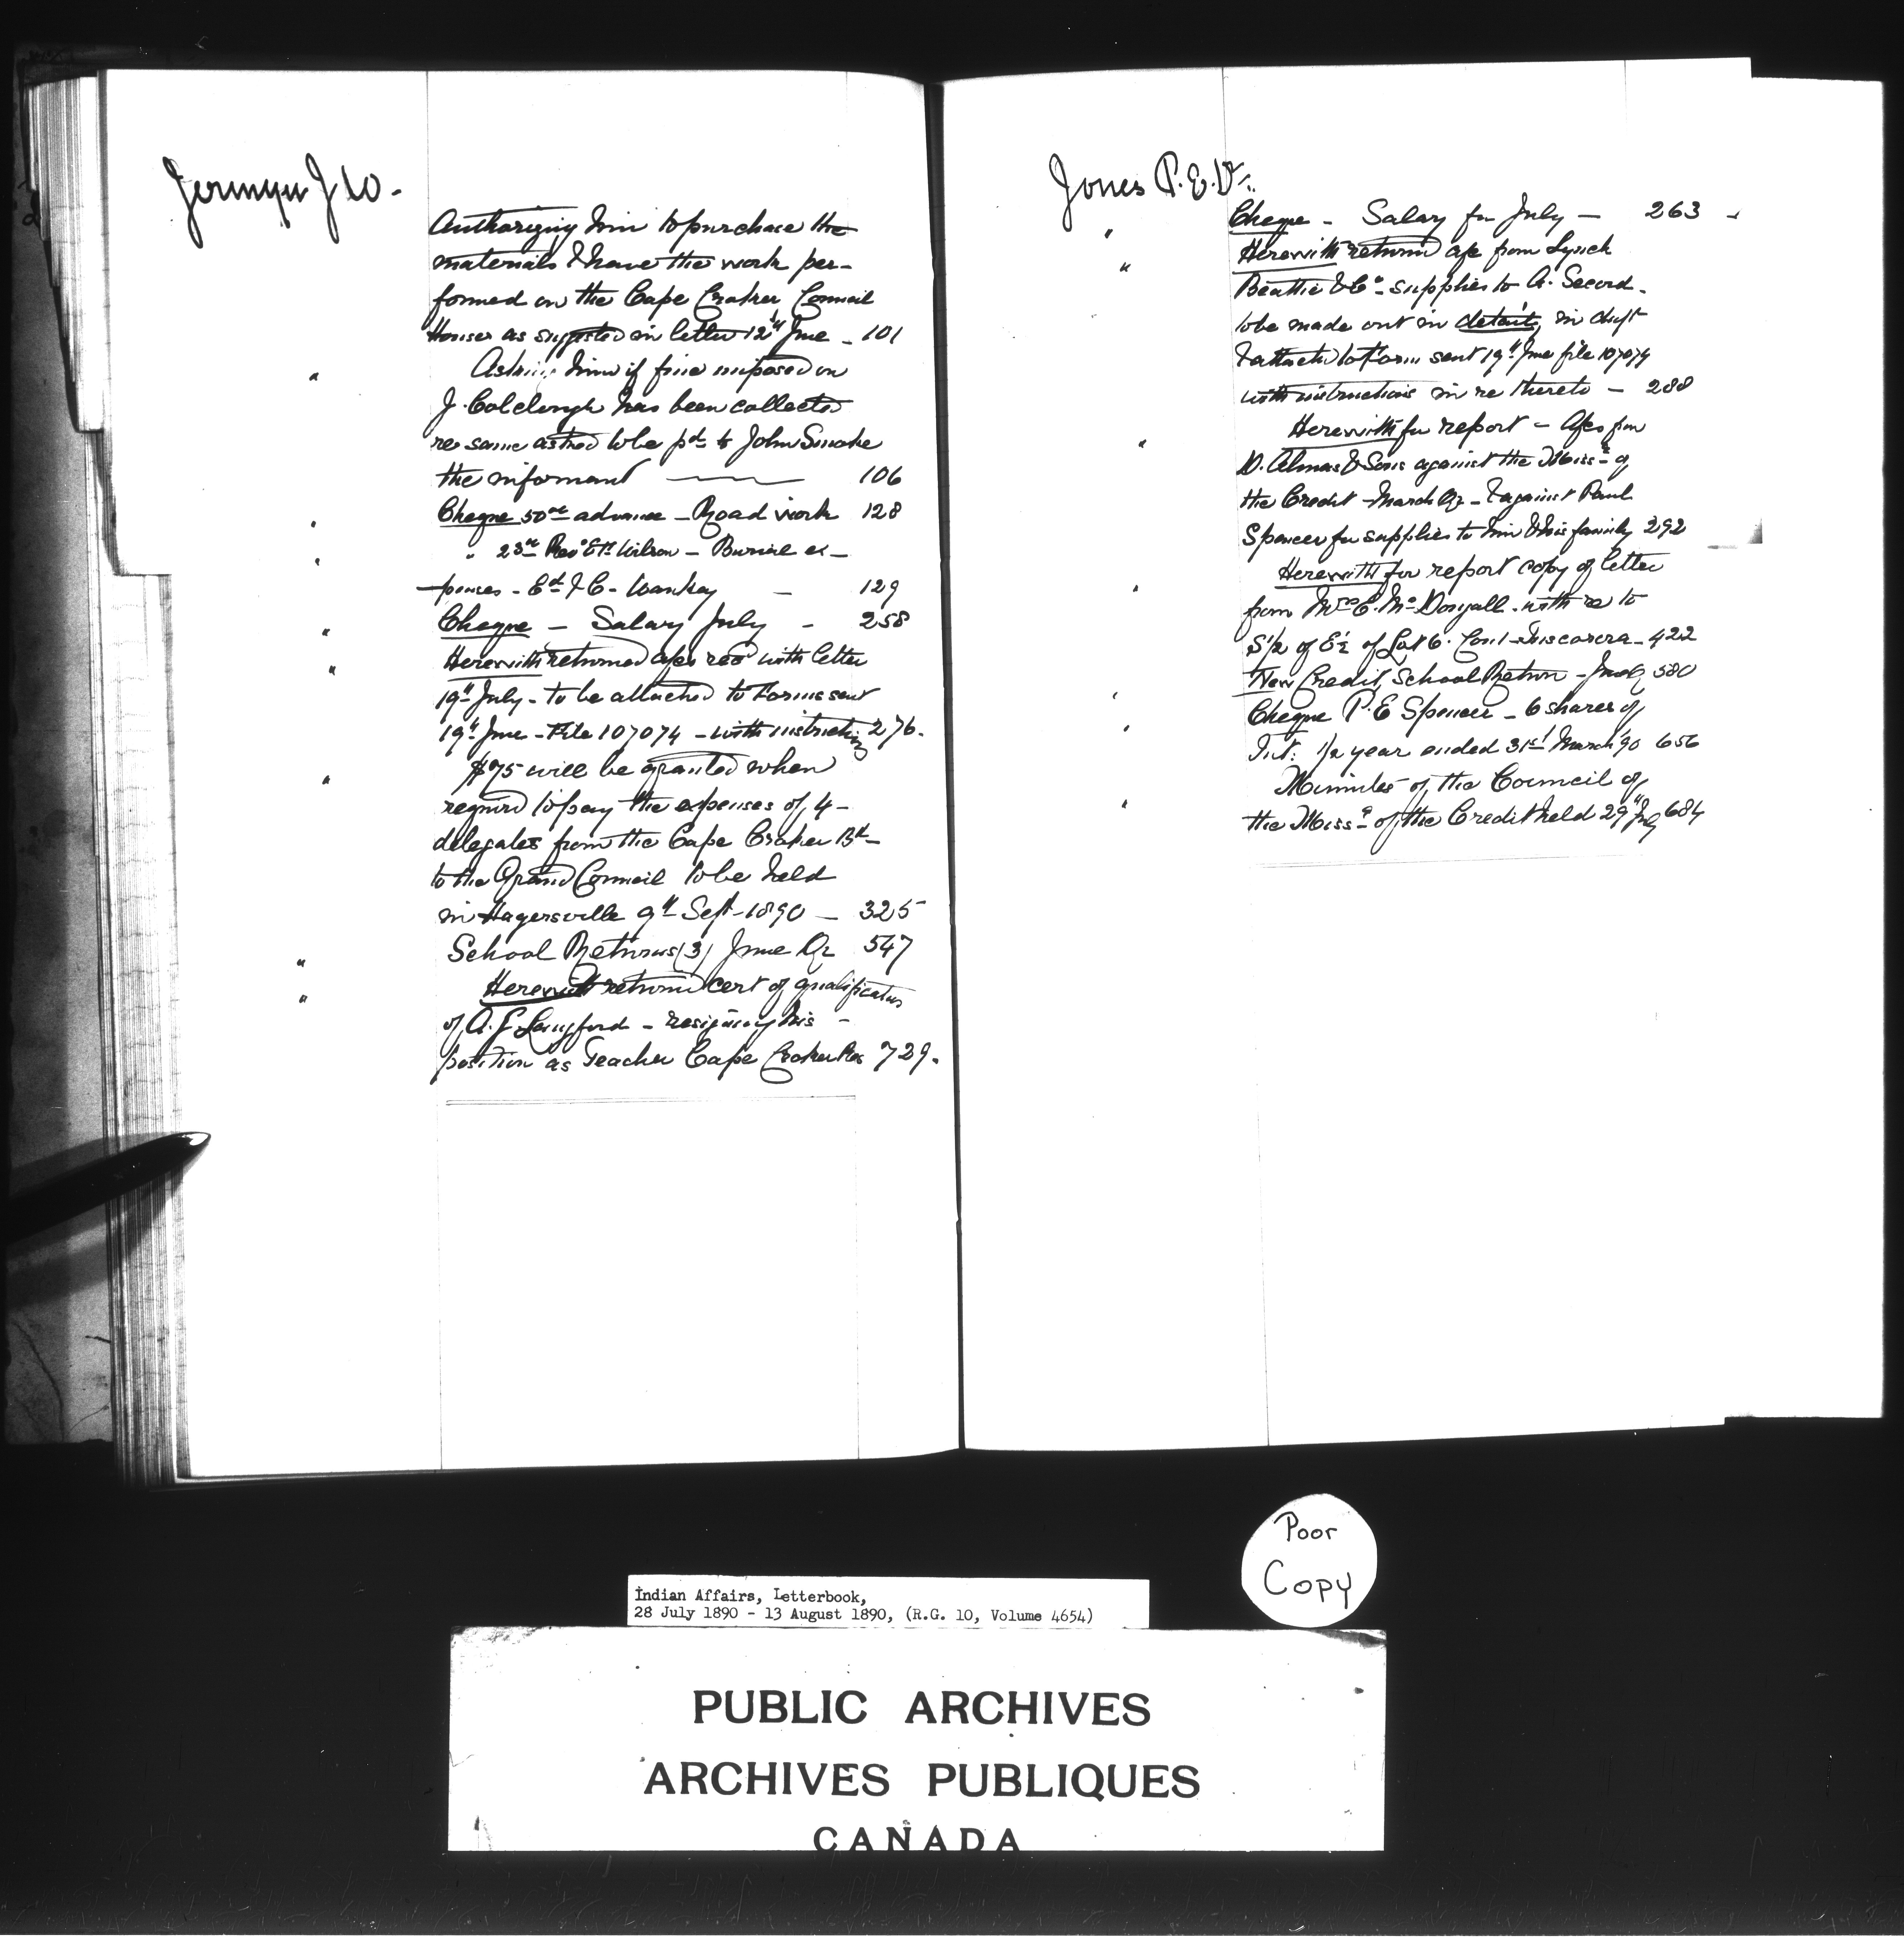 Jermyn J W -
Authorizing him to purchase the
materials & have the work per-
formed on the Cape Croker Council
Houses as suggested in letter 12th June - 101
" Asking him if fine imposed on
J. Colclough has been collected
re same asked to be pd to John Smoke
the informant — 106
" Cheque 50.00 advance - Road work 128
" " 23.00 Revd Wilson - Burial ex-
-penses - Ed & C. Wankey - 129
" Cheque - Salary July - 258
" Herewith returned a/cs recd with letter
19th July - to be attached to Forms sent
19th June - File 107074 - with instructions 276.
" $75 will be granted when
required to pay the expenses of 4 -
delegates from the Cape Croker Bd -
to the Grand Council to be held
in Hagersville 9th Sept - 1890 - 325
" School Returns (3) June Qr 547
" Herewith returned cert of qualification
of A. Langford - resigning his -
position as Teacher Cape Croker Res 729.
Jones P. E. Dr.
" Cheque - Salary for July - 263
" Herewith returned a/c from Lynch
Beattie & Co - supplies to A. Secord -
to be made out in detail, in dupt
& attached to Form sent 19th June file 107074
with instructions in re thereto - 288
" Herewith for report - A/cs from
D. Almas & Sons against the Miss.s of
the Credit - March Qr - & against Paul
Spencer for supplies to him & his family 292
" Herewith for report copy of letter
from Mrs C. McDougall - with re to
S 1/2 of E 1/2 of Lot 6. Con 1 - Tuscarora - 422
" New Credit School Return - June Qr 580
" Cheque P. E Spencer - 6 shares of
Int: 1/2 year ended 31st March '90 656
" Minutes of the Council of
the Miss.s of the Credit held 29th July 684
Poor
Copy
Indian Affairs, Letterbook,
28 July 1890 - 13 August 1890, (R.G. 10, Volume 4654)
PUBLIC ARCHIVES
ARCHIVES PUBLIQUES
CANADA